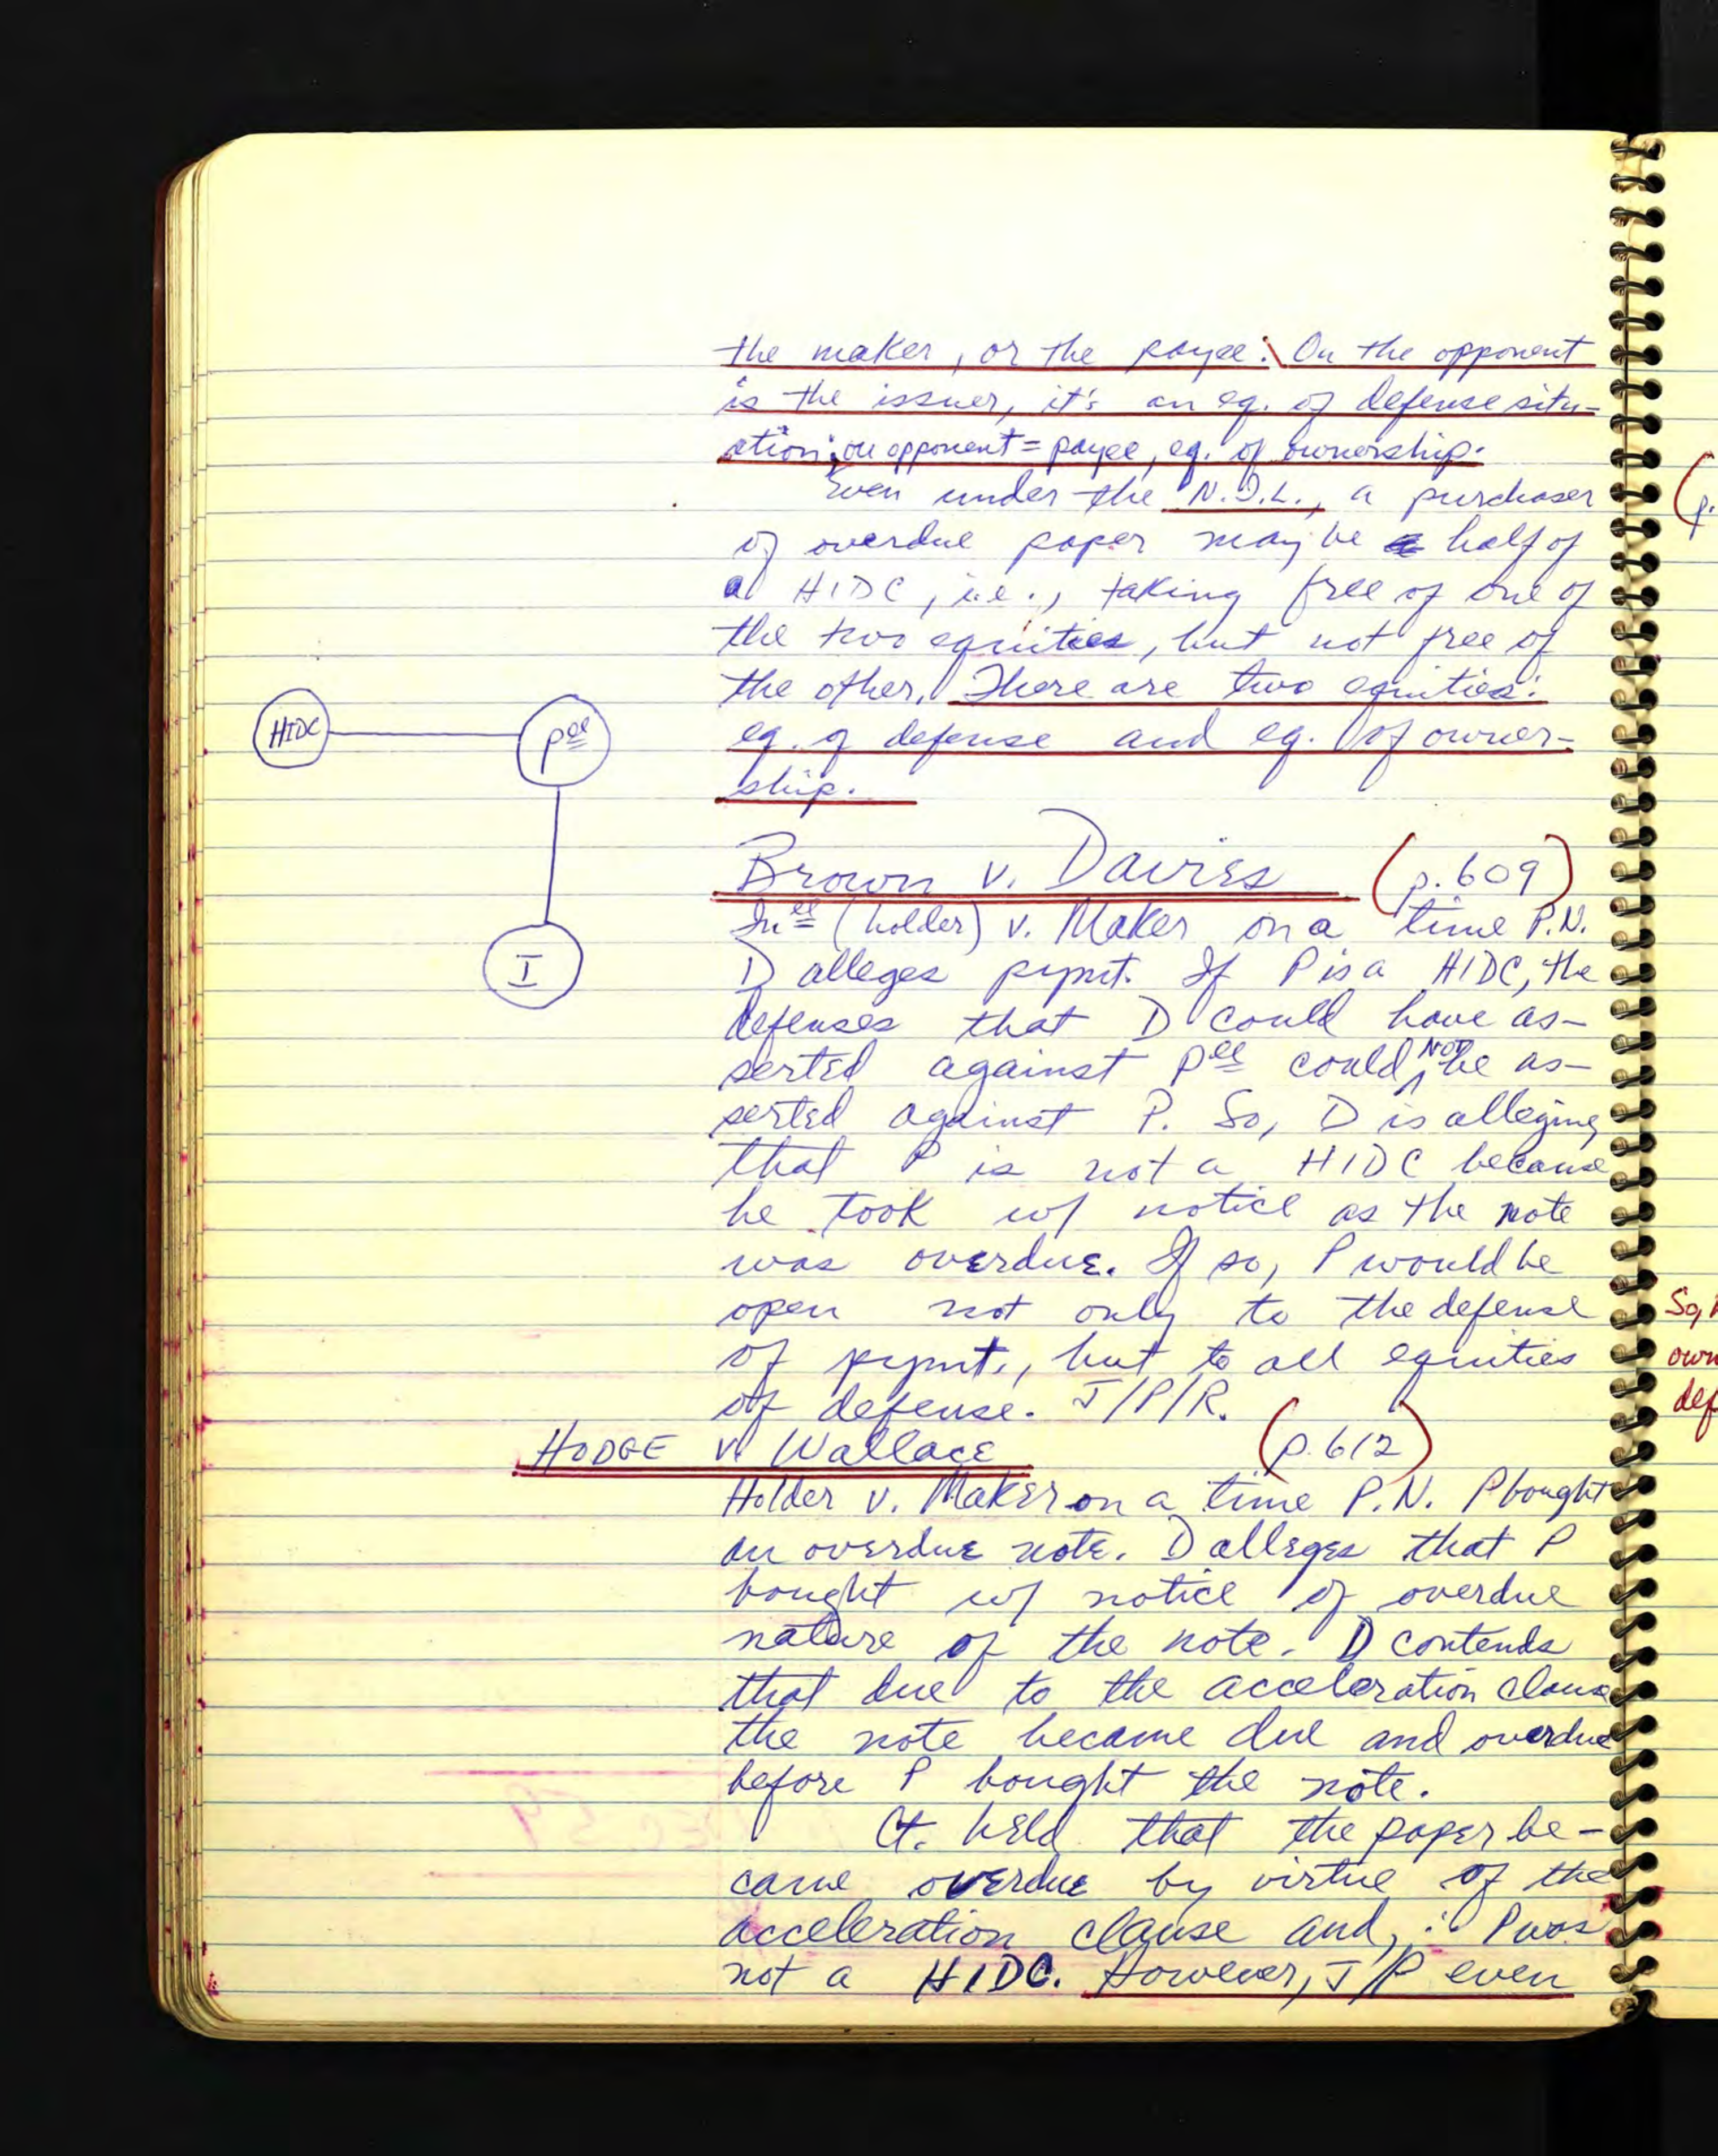 the maker, or the payee. On the opponent
is the issuer, it's an eq. of defense situ-
ation; on opponent = payee, eq. of ownership.
Even under the N.I.L., a purchaser
of overdue paper may be half of
a HIDC, i.e., taking free of one of
the two equities, but not free of
the other. There are two equities:
eq. of defense and eq. of owner-
ship.
HIDC
pee
I
Brown v. Davies (p.609)
(holder) v. Maker on a time P.N.
D alleges pymt. If P is a HIDC, the
defenses that D could have as-
serted against pee could NOT be as-
serted against P. So, D is alleging
that P is not a HIDC because
he took w/ notice as the note
was overdue. If so, P would be
open not only to the defense
of pymt., but to all equities
of defense. J/P/R.
HODGE v. Wallace (p.612)
Holder v. Maker on a time P.N. P bought
an overdue note. D alleges that P
bought w/ notice of overdue
nature of the note. D contends
that due to the acceleration clause
the note became due and overdue
before P bought the note.
Ct. held that the paper be-
came overdue by virtue of the
acceleration clause and, ∴ P was
not a HIDC. However, J/P even
(p.
So,
own
def